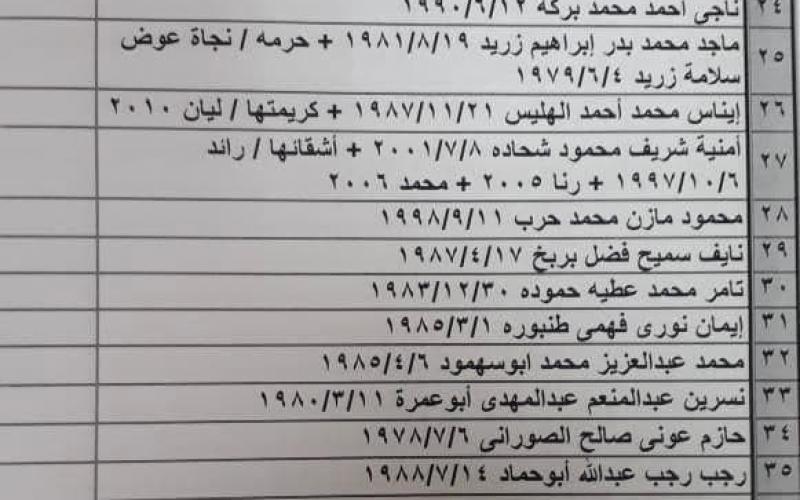 ٢٤ ناجى أحمد محمد بركه ١٩٩٠/٦/١٢
٢٥ ماجد محمد بدر إبراهيم زريد ١٩٨١/٨/١٩ + حرمه / نجاة عوض
سلامة زريد ١٩٧٩/٦/٤
٢٦ إيناس محمد أحمد الهليس ١٩٨٧/١١/٢١ + كريمتها / ليان ٢٠١٠
٢٧ أمنية شريف محمود شحاده ٢٠٠١/٧/٨ + أشقائها / رائد
١٩٩٧/١٠/٦ + رنا ٢٠٠٥ + محمد ٢٠٠٦
٢٨ محمود مازن محمد حرب ١٩٩٨/٩/١١
٢٩ نايف سميح فضل بربخ ١٩٨٧/٤/١٧
٣٠ تامر محمد عطيه حموده ١٩٨٣/١٢/٣٠
٣١ إيمان نورى فهمى طنبوره ١٩٨٥/٣/١
٣٢ محمد عبدالعزيز محمد ابوسهمود ١٩٨٥/٤/٦
٣٣ نسرين عبدالمنعم عبدالمهدى أبوعمرة ١٩٨٠/٣/١١
٣٤ حازم عونى صالح الصورانى ١٩٧٨/٧/٦
٣٥ رجب رجب عبدالله أبوحماد ١٩٨٨/٧/١٤